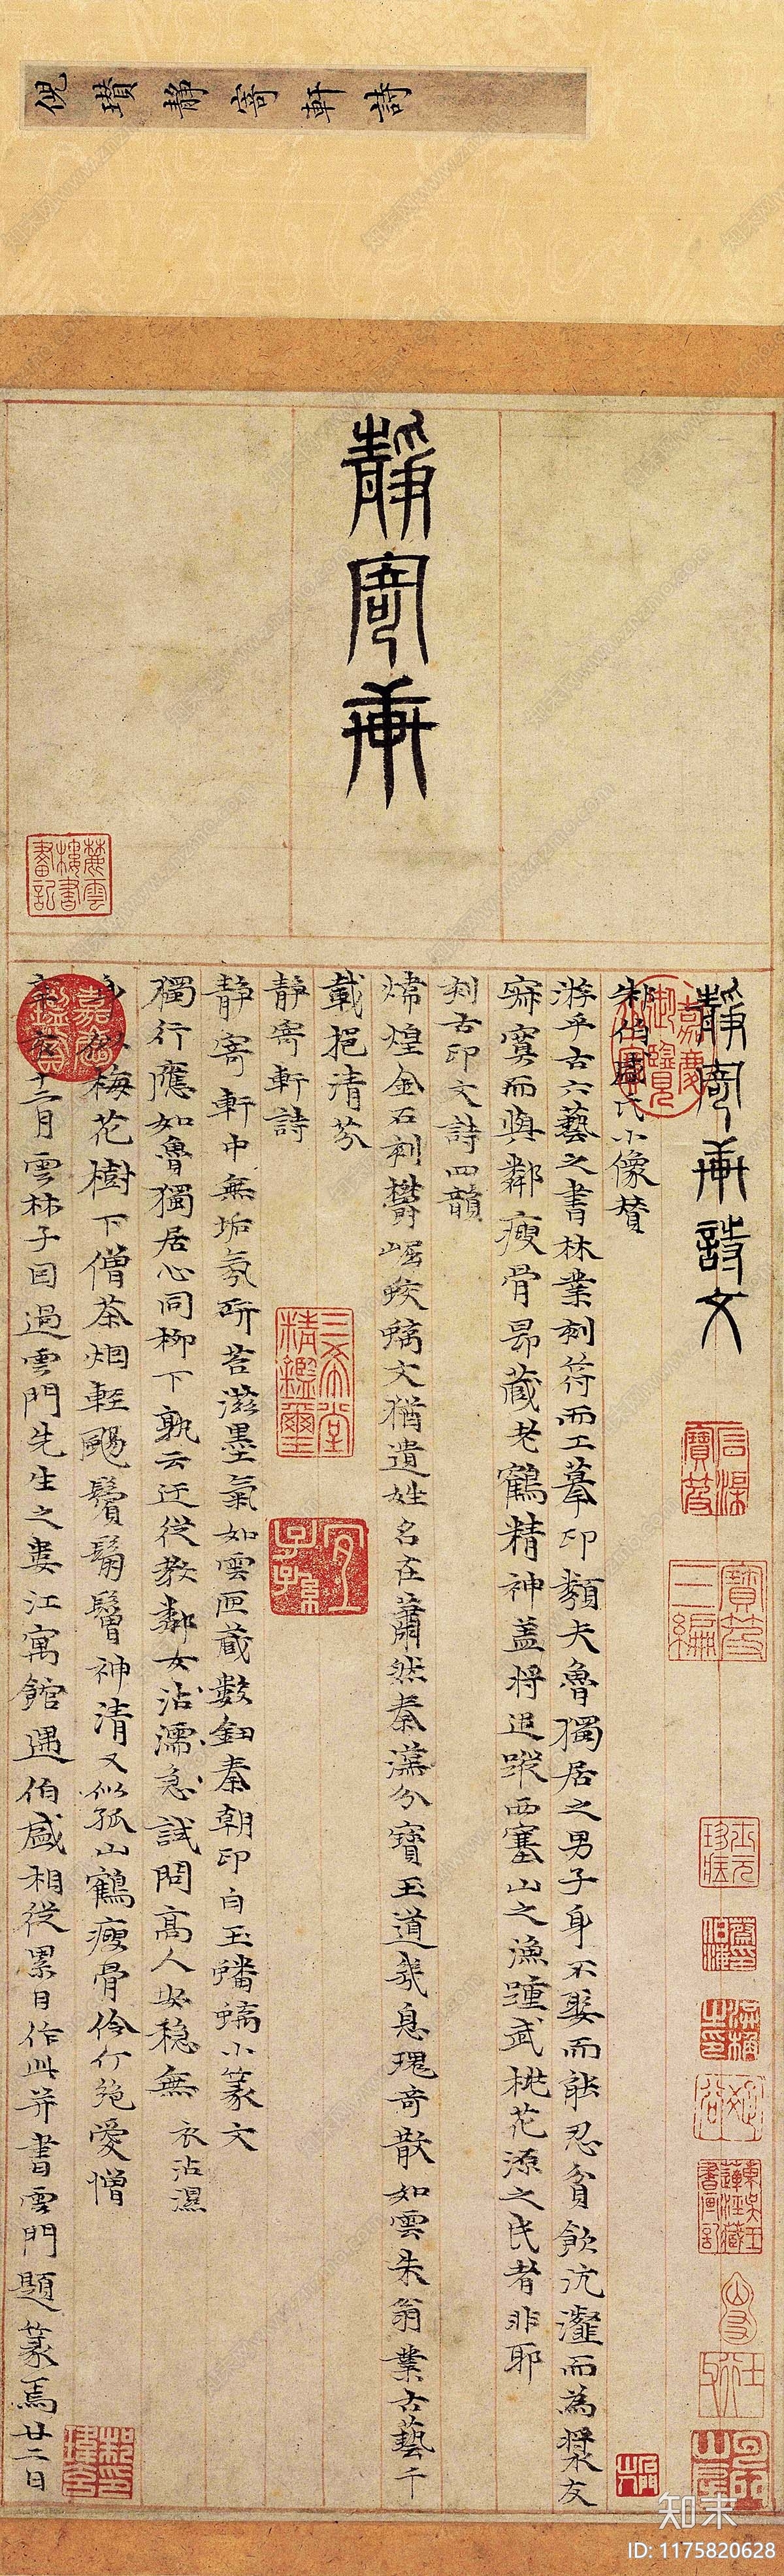 倪瓚靜寄軒詩
靜寄軒
靜寄軒詩文
朱伯盛氏小像贊
游乎古六藝之書林業刻符而工摹印類夫魯獨居之男子身不娶而能忍貧飲沆瀣而為漿友
寂寞而與鄰瘦骨昂藏老鶴精神蓋將追蹤西塞山之漁踵武桃花源之民者非耶
刻古印文詩四韻
煒煌金石刻鬱崛蛟螭文猶遺姓名在蕭然秦漢分寶玉道幾息瑰奇散如雲朱翁業古藝千
載挹清芬
靜寄軒詩
靜寄軒中無垢氛研苔滋墨氣如雲匝藏數鈕秦朝印白玉蟠螭小篆文
獨行應如魯獨居心同柳下孰云迂從教鄰女沾濡急試問高人安穩無 衣沾濕
梅花樹下僧茶烟輕颺鬢鬅鬙神清又似孤山鶴瘦骨伶仃絕愛憎
辛亥十二月雲林子因過雲門先生之婁江寓館遇伯盛相從累日作此并書雲門題篆焉廿二日
嘉慶御覽之寶
嘉慶鑑賞
三希堂精鑑璽
宜子孫
石渠寶笈
寶笈三編
麓雲樓書畫記
知末
ID: 1175820628